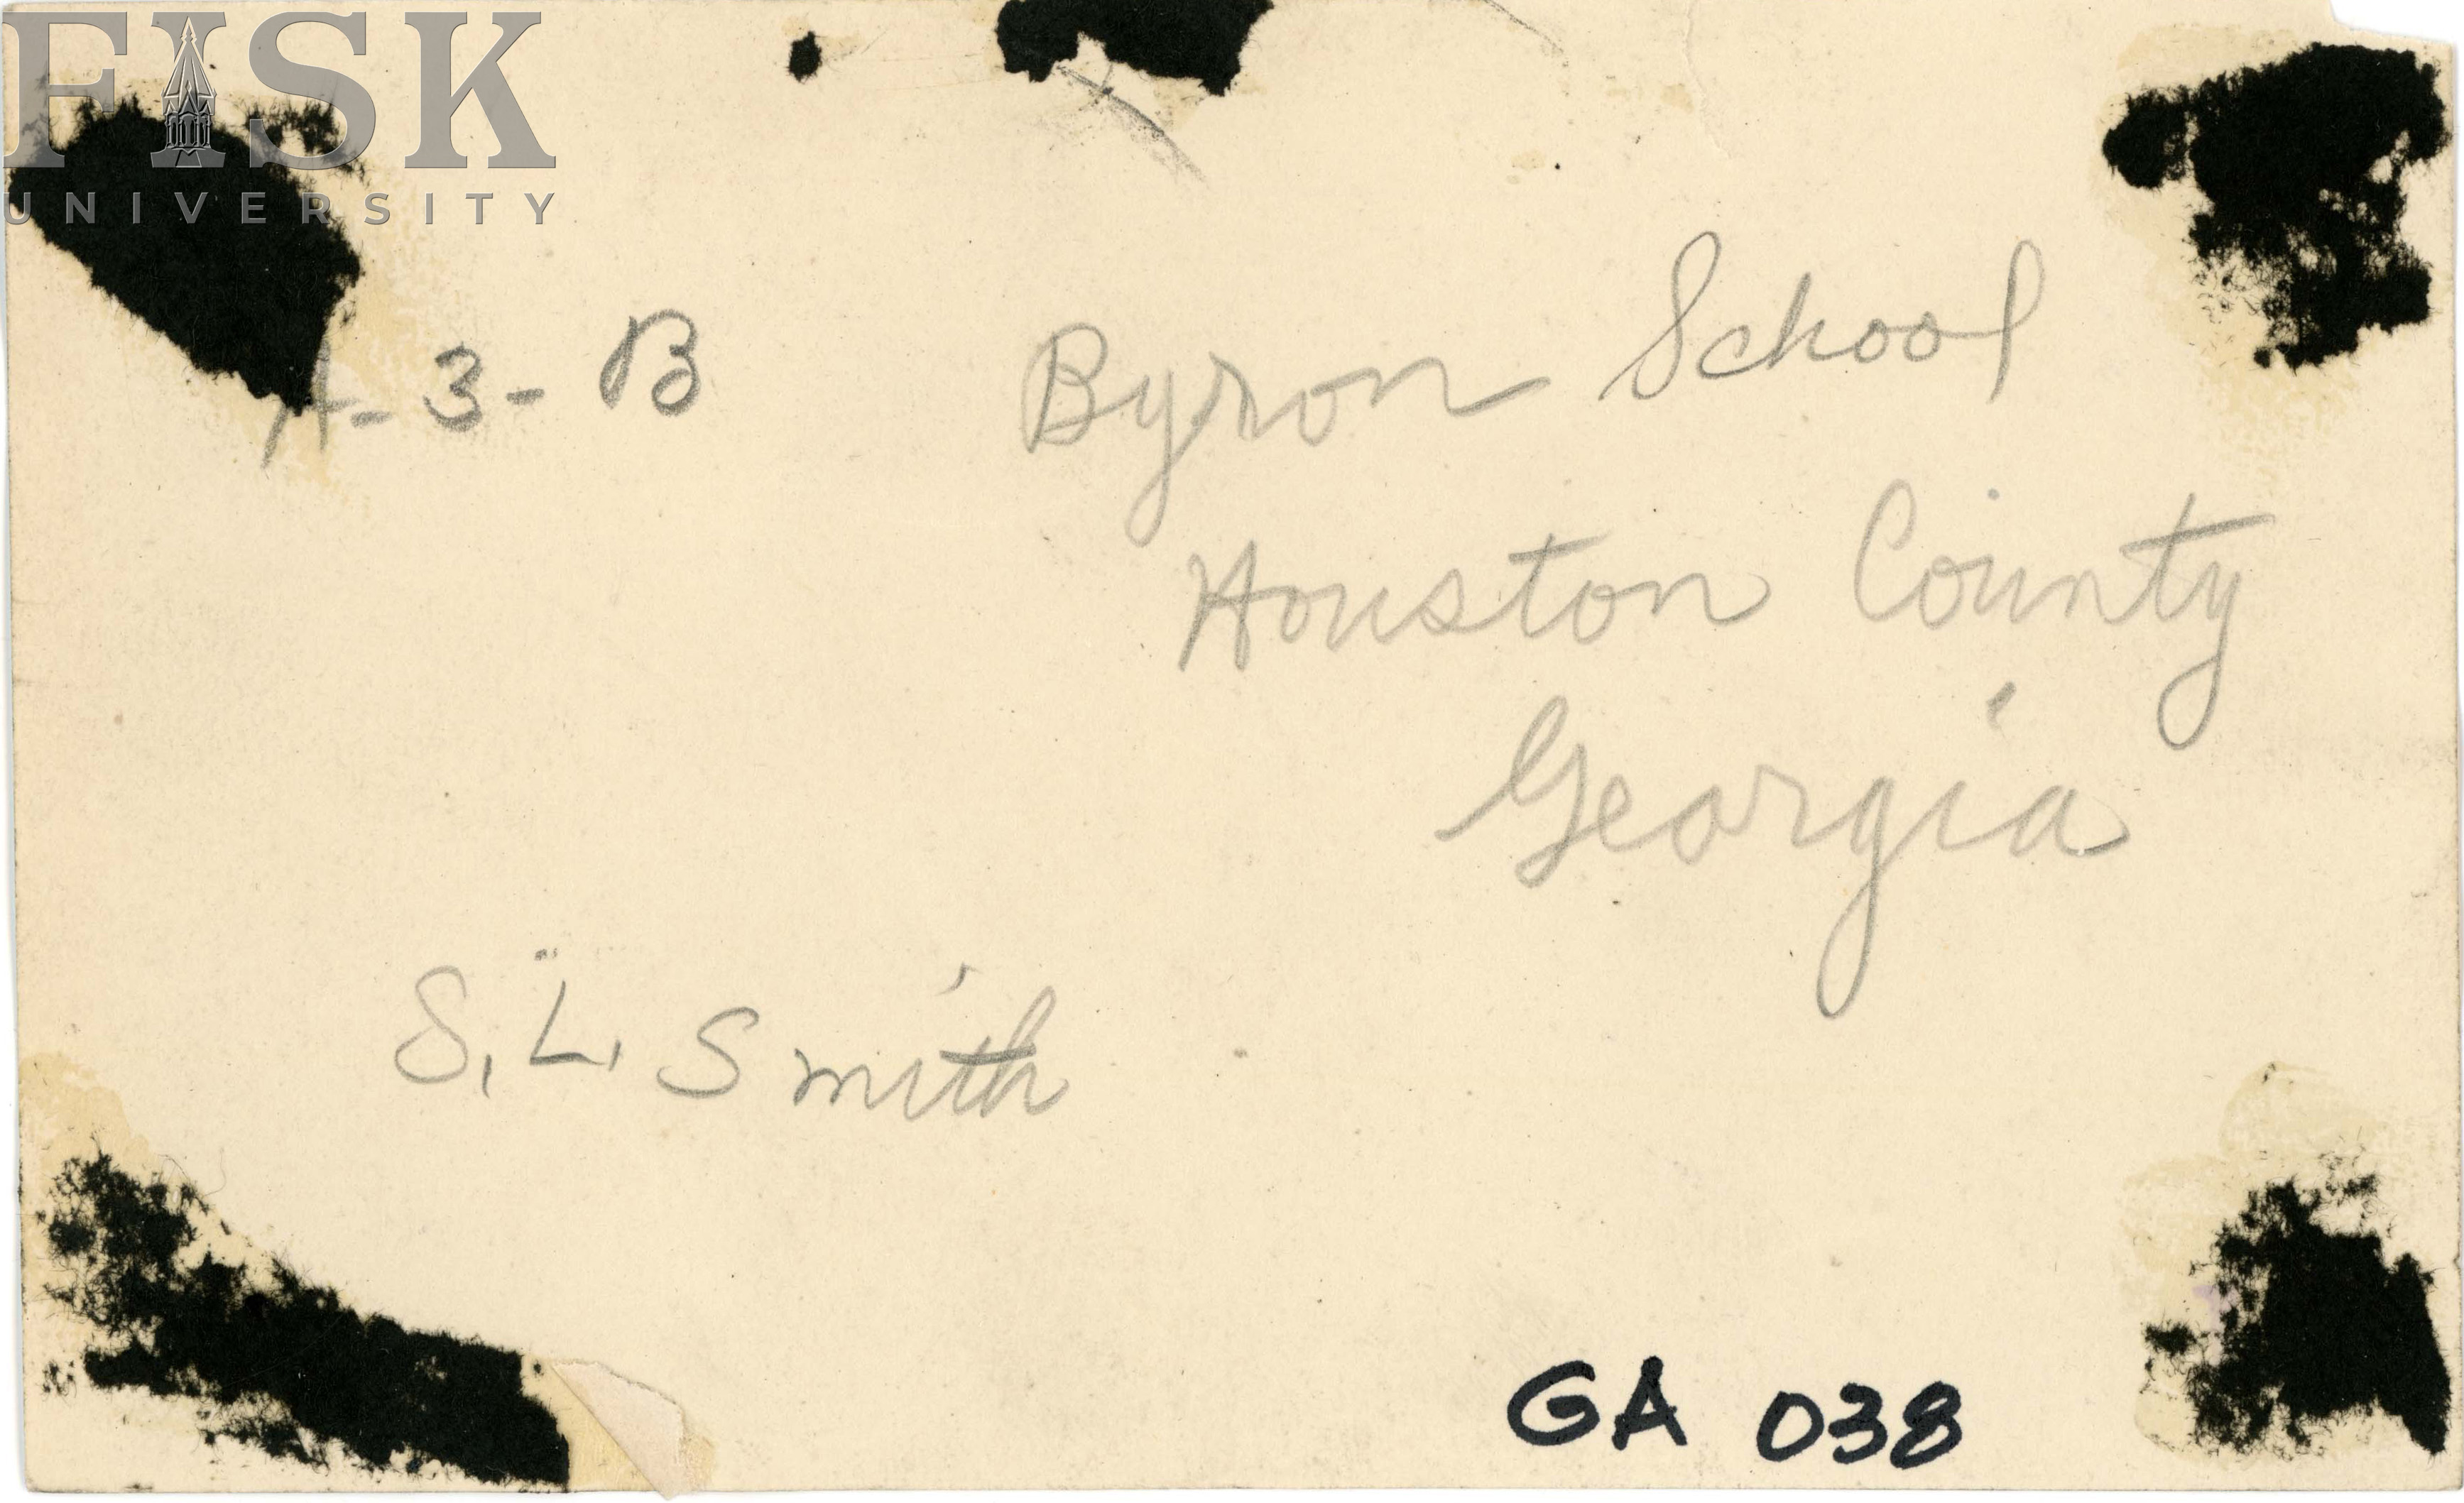 FISK
UNIVERSITY
A-3-B
Byron School
Houston County
Georgia
S. L. Smith
GA 038